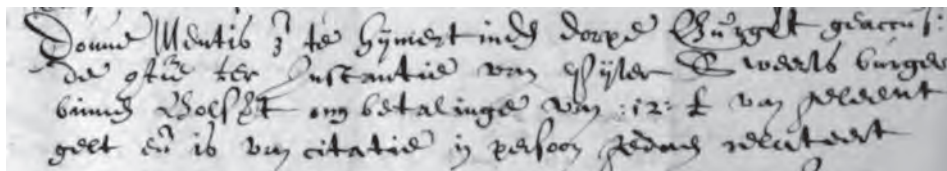 Douue Wentis z te hijmert indē dorpe Gurgelt geaccusr:
de ghē ter Instantie van Pijter Sweerts burger
binnē Bolswt om betalinge van :12: £ van geleent
gelt eñ is van citatie in persoon gedaen relateert